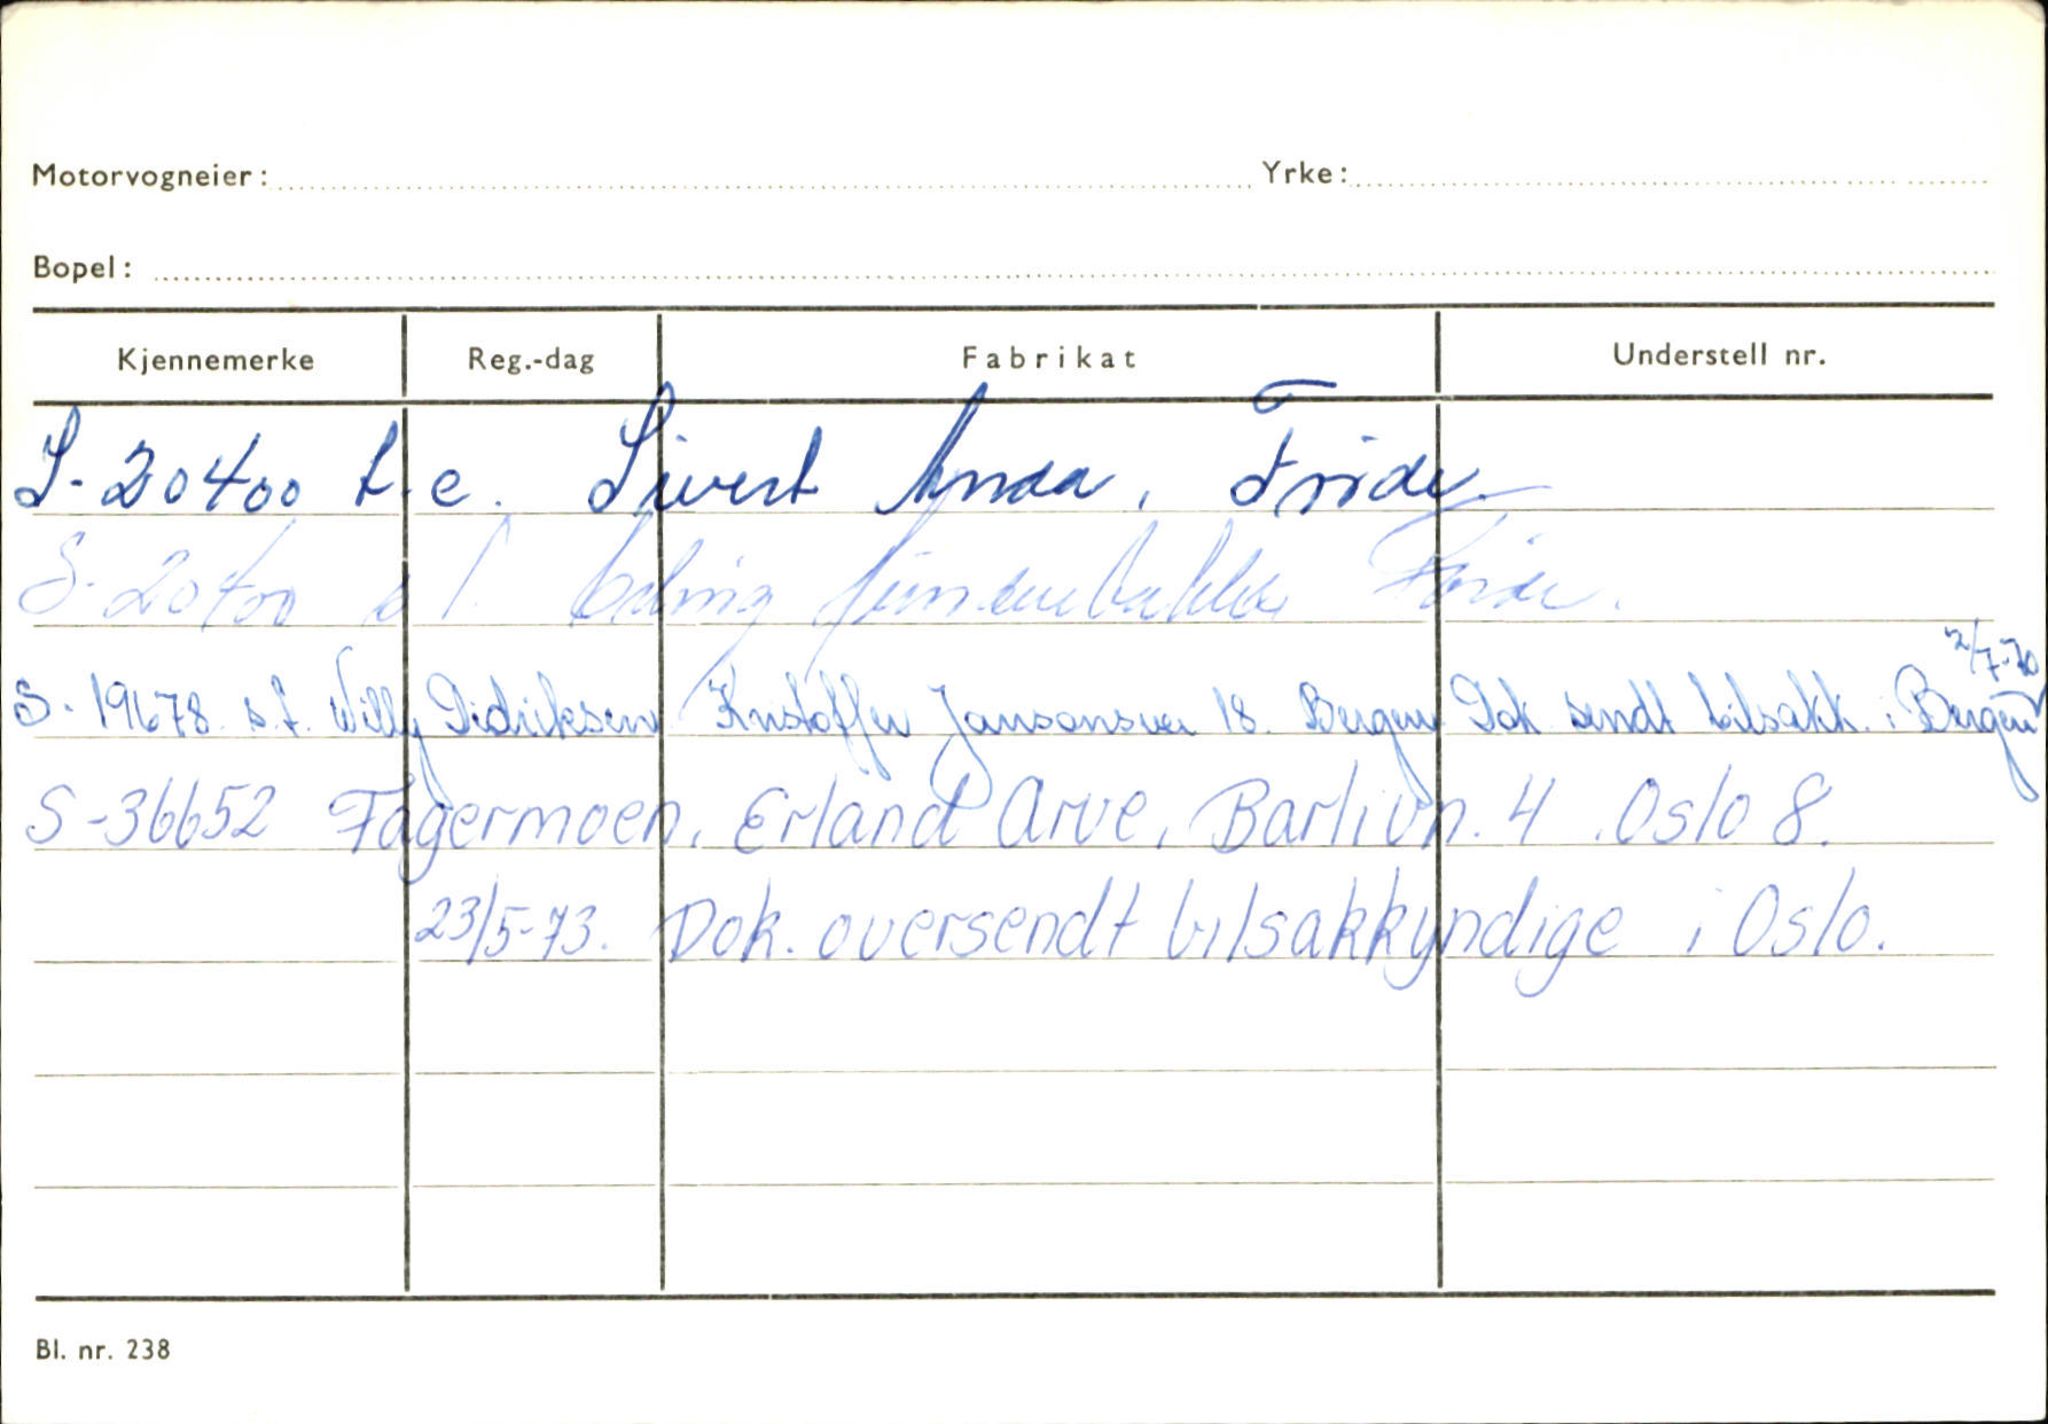 Motorvogneier: Yrke:
Bopel:
Kjennemerke Reg.-dag Fabrikat Understell nr.
S-20400 t.e. Sivert Anda, Førde.
S-20400 s.f. Førde.
2/7-70
S-19678 s.f. Willy Didriksen Kristoffer Jansonsvei 18. Bergen Dok sendt bilsakk. i Bergen
S-36652 Fagermoen, Erland Arve, Barlivn. 4. Oslo 8.
23/5-73. Dok. oversendt bilsakkyndige i Oslo.
Bl. nr. 238